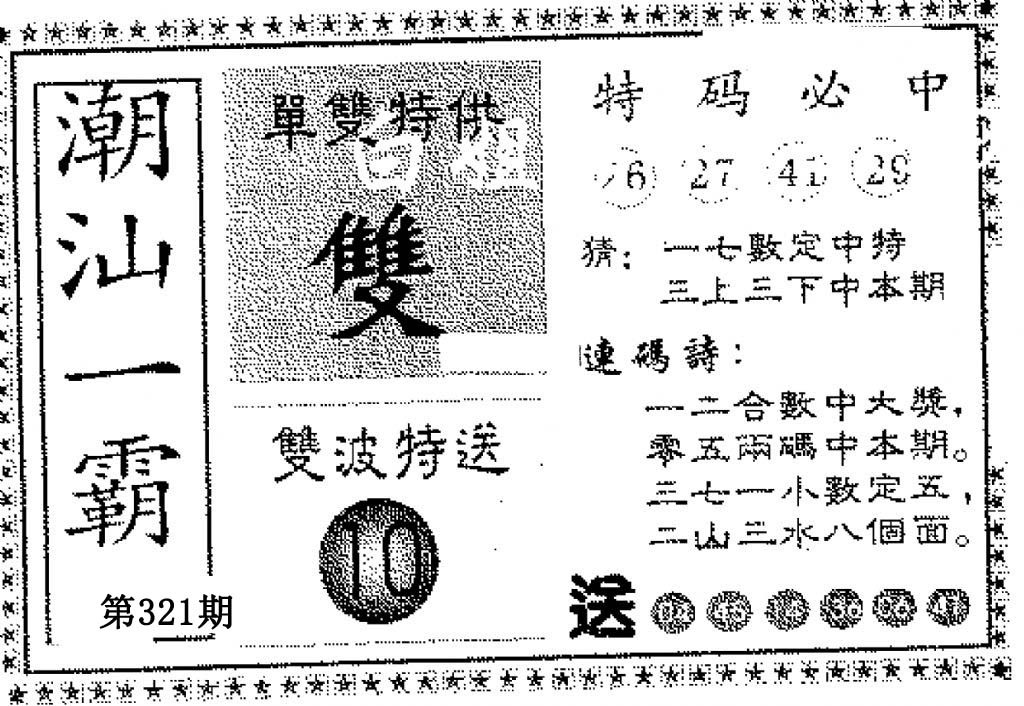 潮汕一霸
第321期
單雙特供
白姐
雙
雙波特送
10
特码必中
27 41 29
猜：一七數定中特
三上三下中本期
連碼詩：
一二合數中大獎，
零五兩碼中本期。
三七一小數定五，
二山三水八個面。
送